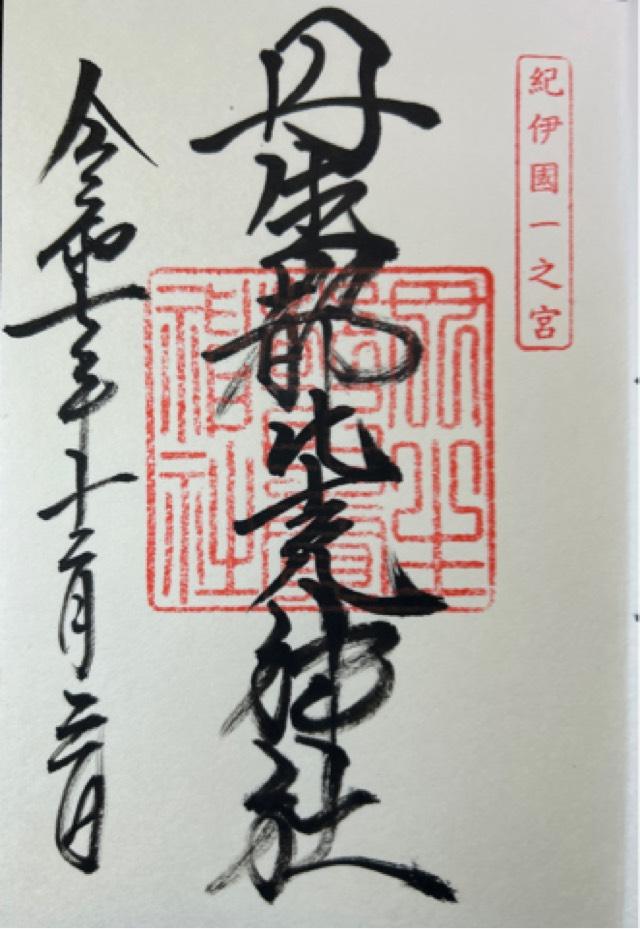 紀伊國一之宮
丹生都比売神社
丹生
都比賣
神社
令和七年十二月二日